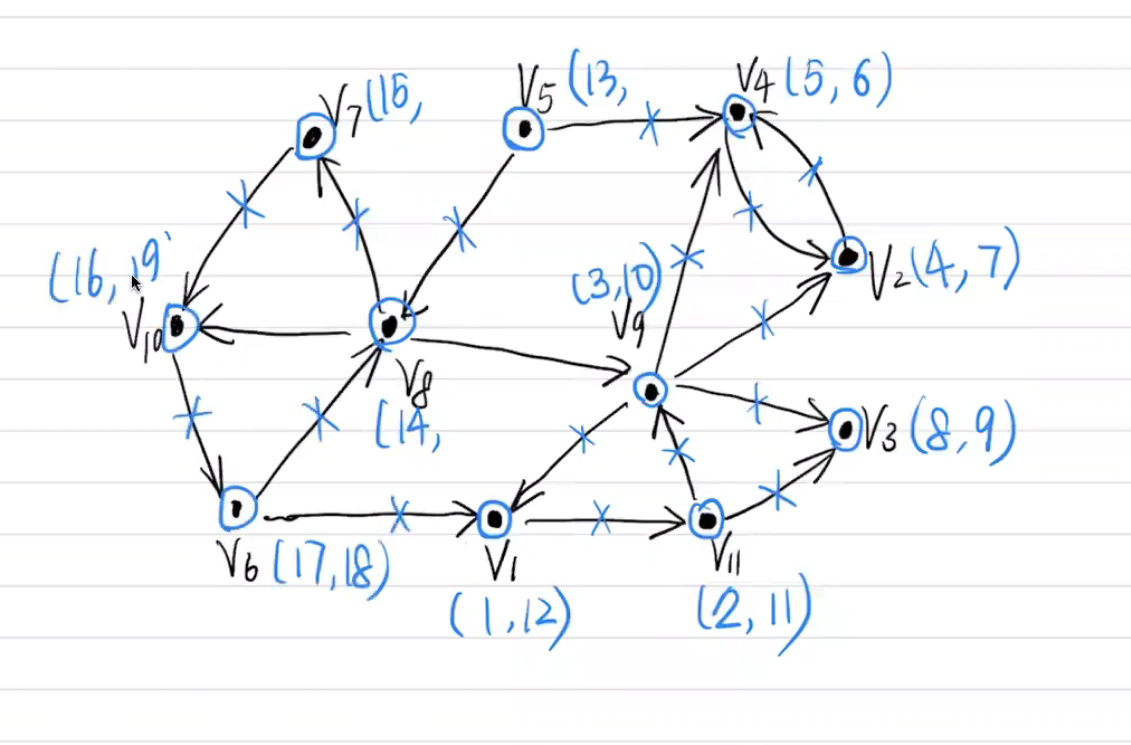 V7 (15,
V5 (13,
V4 (5, 6)
(16, 19
V10
(3,10)
V9
V2 (4, 7)
V8
(14,
V3 (8, 9)
V6 (17,18)
V1
(1,12)
V11
(2, 11)